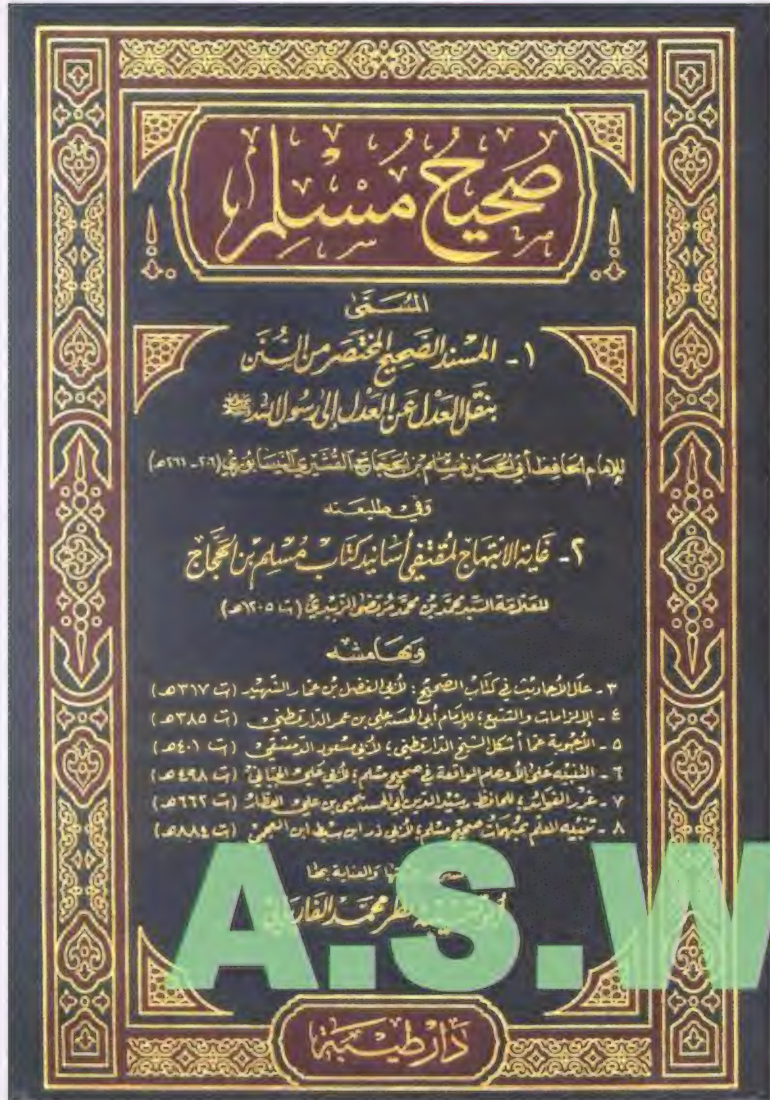 صَحِيحُ مُسْلِم
المُسَمَّىٰ
١ - المسند الصحيح المختصر من السنن
بنقل العدل عن العدل إلى رسول الله ﷺ
للإمام الحافظ أبي الحسين مسلم بن الحجاج القشيري النيسابوري (٢٠٦ - ٢٦١هـ)
وفي طليعته
٢ - غاية الابتهاج لمقتفي أسانيد كتاب مسلم بن الحجاج
للعلامة السيد محمد بن محمد مرتضى الزبيدي (ت ١٢٠٥هـ)
وبهامشه
٣ - علل الأحاديث في كتاب الصحيح؛ لأبي الفضل بن عمار الشهيد (ت ٣١٧هـ)
٤ - الإلزامات والتتبع؛ للإمام أبي الحسن علي بن عمر الدارقطني (ت ٣٨٥هـ)
٥ - الأجوبة عما أشكل الشيخ الدارقطني؛ لأبي مسعود الدمشقي (ت ٤٠١هـ)
٦ - التنبيه على الأوهام الواقعة في صحيح مسلم؛ لأبي علي الجياني (ت ٤٩٨هـ)
٧ - غرر الفوائد؛ للحافظ رشيد الدين أبي الحسين يحيى بن علي العطار (ت ٦٦٢هـ)
٨ - تنبيه المعلم بمبهمات صحيح مسلم؛ لأبي ذر ابن سبط ابن العجمي (ت ٨٨٤هـ)
والعناية بها
نظر محمد الفاريابي
A.S.W
دار طيبة